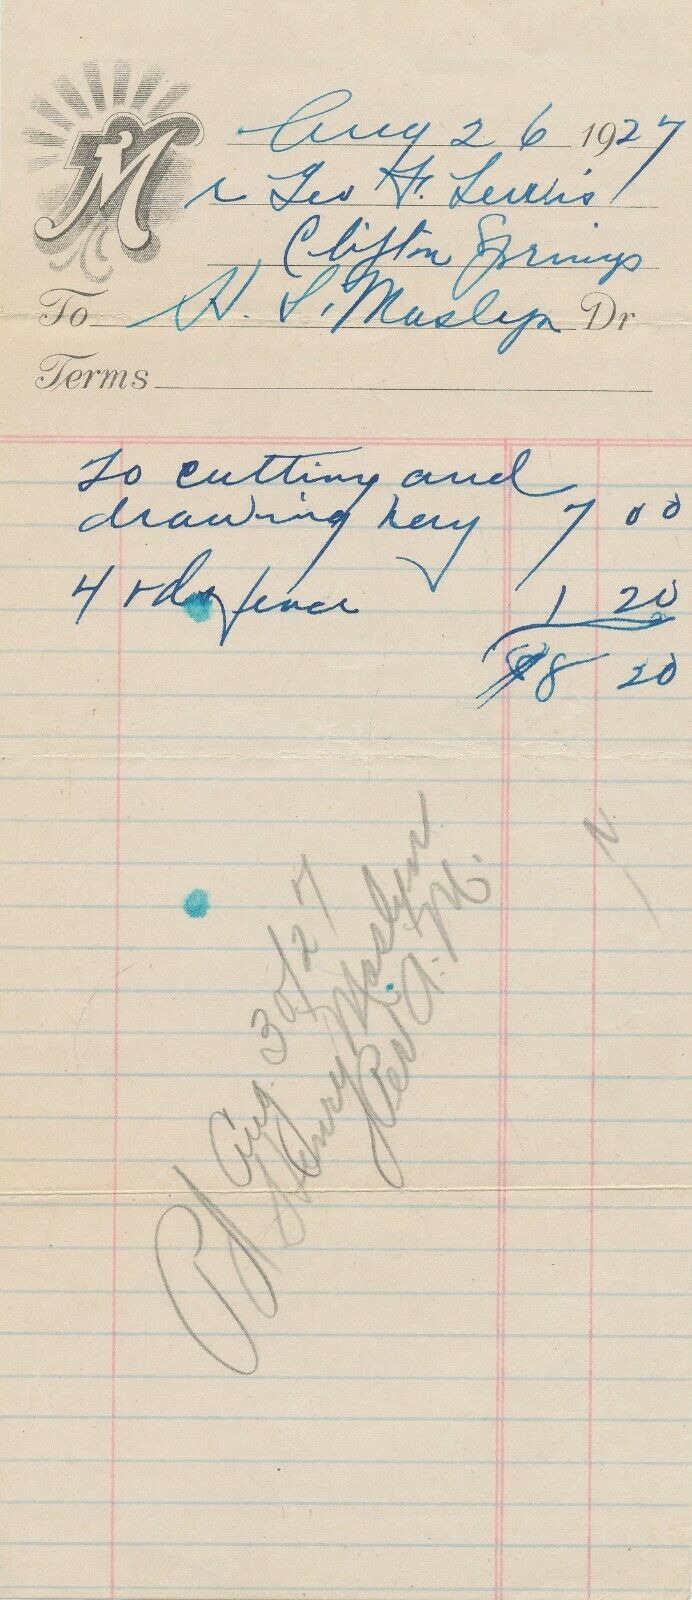 Aug 26 1927
Mr Geo F. Lewis
Clifton Springs
To H. L. Maslyn Dr
Terms
To cutting and
drawing hay 7 00
4 rds fence 1 20
$8 20
Pd Aug. 30/27
Henry Maslyn
Per A. M.